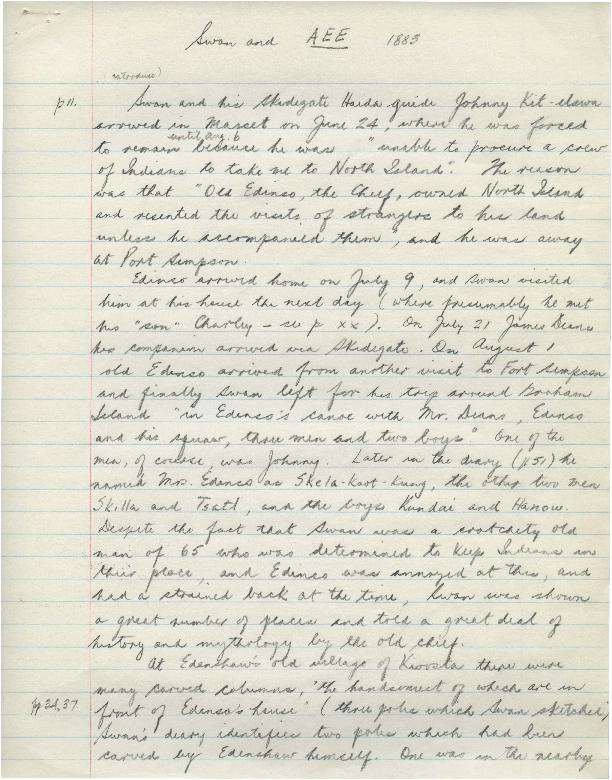 Swan and AEE 1883
(introduce)
p 11. Swan and his Skidegate Haida guide Johnny Kit-elswa
arrived in Masset on June 24, where he was forced
until Aug. 6
to remain because he was "unable to procure a crew
of Indians to take me to North Island". The reason
was that "Old Edinso, the Chief, owned North Island
and resented the visits of strangers to his land
unless he accompanied them", and he was away
at Port Simpson.
Edinso arrived home on July 9, and Swan visited
him at his house the next day (where presumably he met
his "son" Charley - see p xx). On July 21 James Deans
his companion arrived via Skidegate. On August 1
old Edinso arrived from another visit to Fort Simpson
and finally Swan left for his trip around Graham
Island "in Edinso's canoe with Mr. Deans, Edinso
and his squaw, three men and two boys". One of the
men, of course, was Johnny. Later in the diary (p 51) he
named Mrs. Edinso as Skela-Kaot-Kung, the other two men
Skilla and Tsatl, and the boys Kundai and Hanow.
Despite the fact that Swan was a crotchety old
man of 65 who was determined to keep Indians in
their place, and Edinso was annoyed at this, and
had a strained back at the time, Swan was shown
a great number of places and told a great deal of
history and mythology by the old chief.
At Edenshaw's old village of Kioosta there were
many carved columns, "the handsomest of which are in
pp 34, 37 front of Edinso's house" (three poles which Swan sketched)
Swan's diary identifies two poles which had been
carved by Edenshaw himself. One was in the nearby